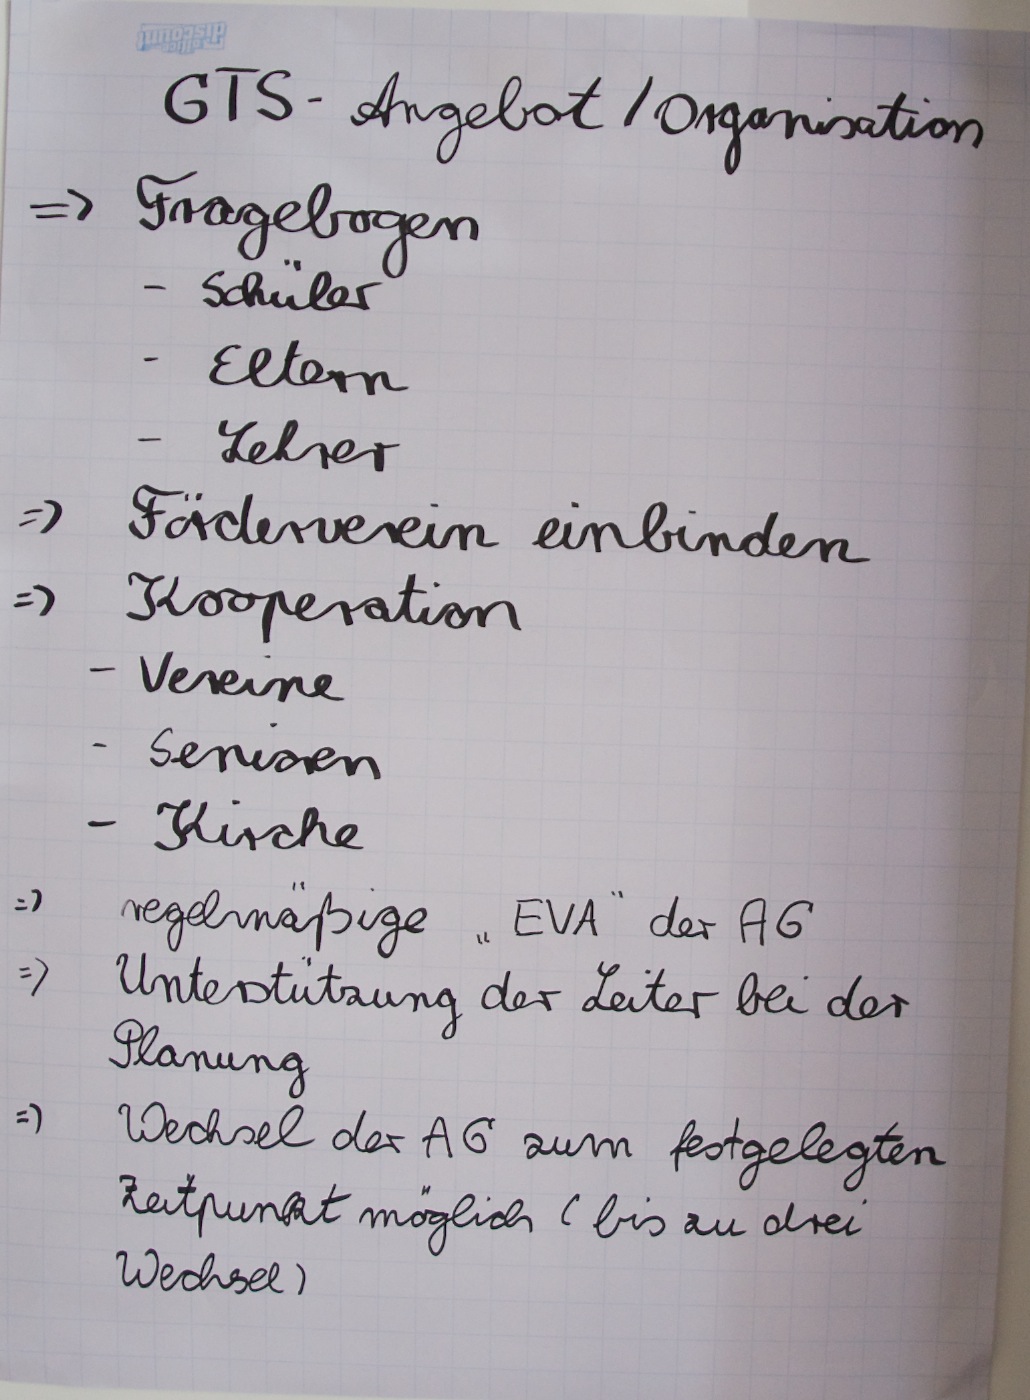 GTS - Angebot / Organisation
=> Fragebogen
- Schüler
- Eltern
- Lehrer
=> Förderverein einbinden
=> Kooperation
- Vereine
- Senioren
- Kirche
=> regelmäßige „EVA" der AG
=> Unterstützung der Leiter bei der
Planung
=> Wechsel der AG zum festgelegten
Zeitpunkt möglich ( bis zu drei
Wechsel)